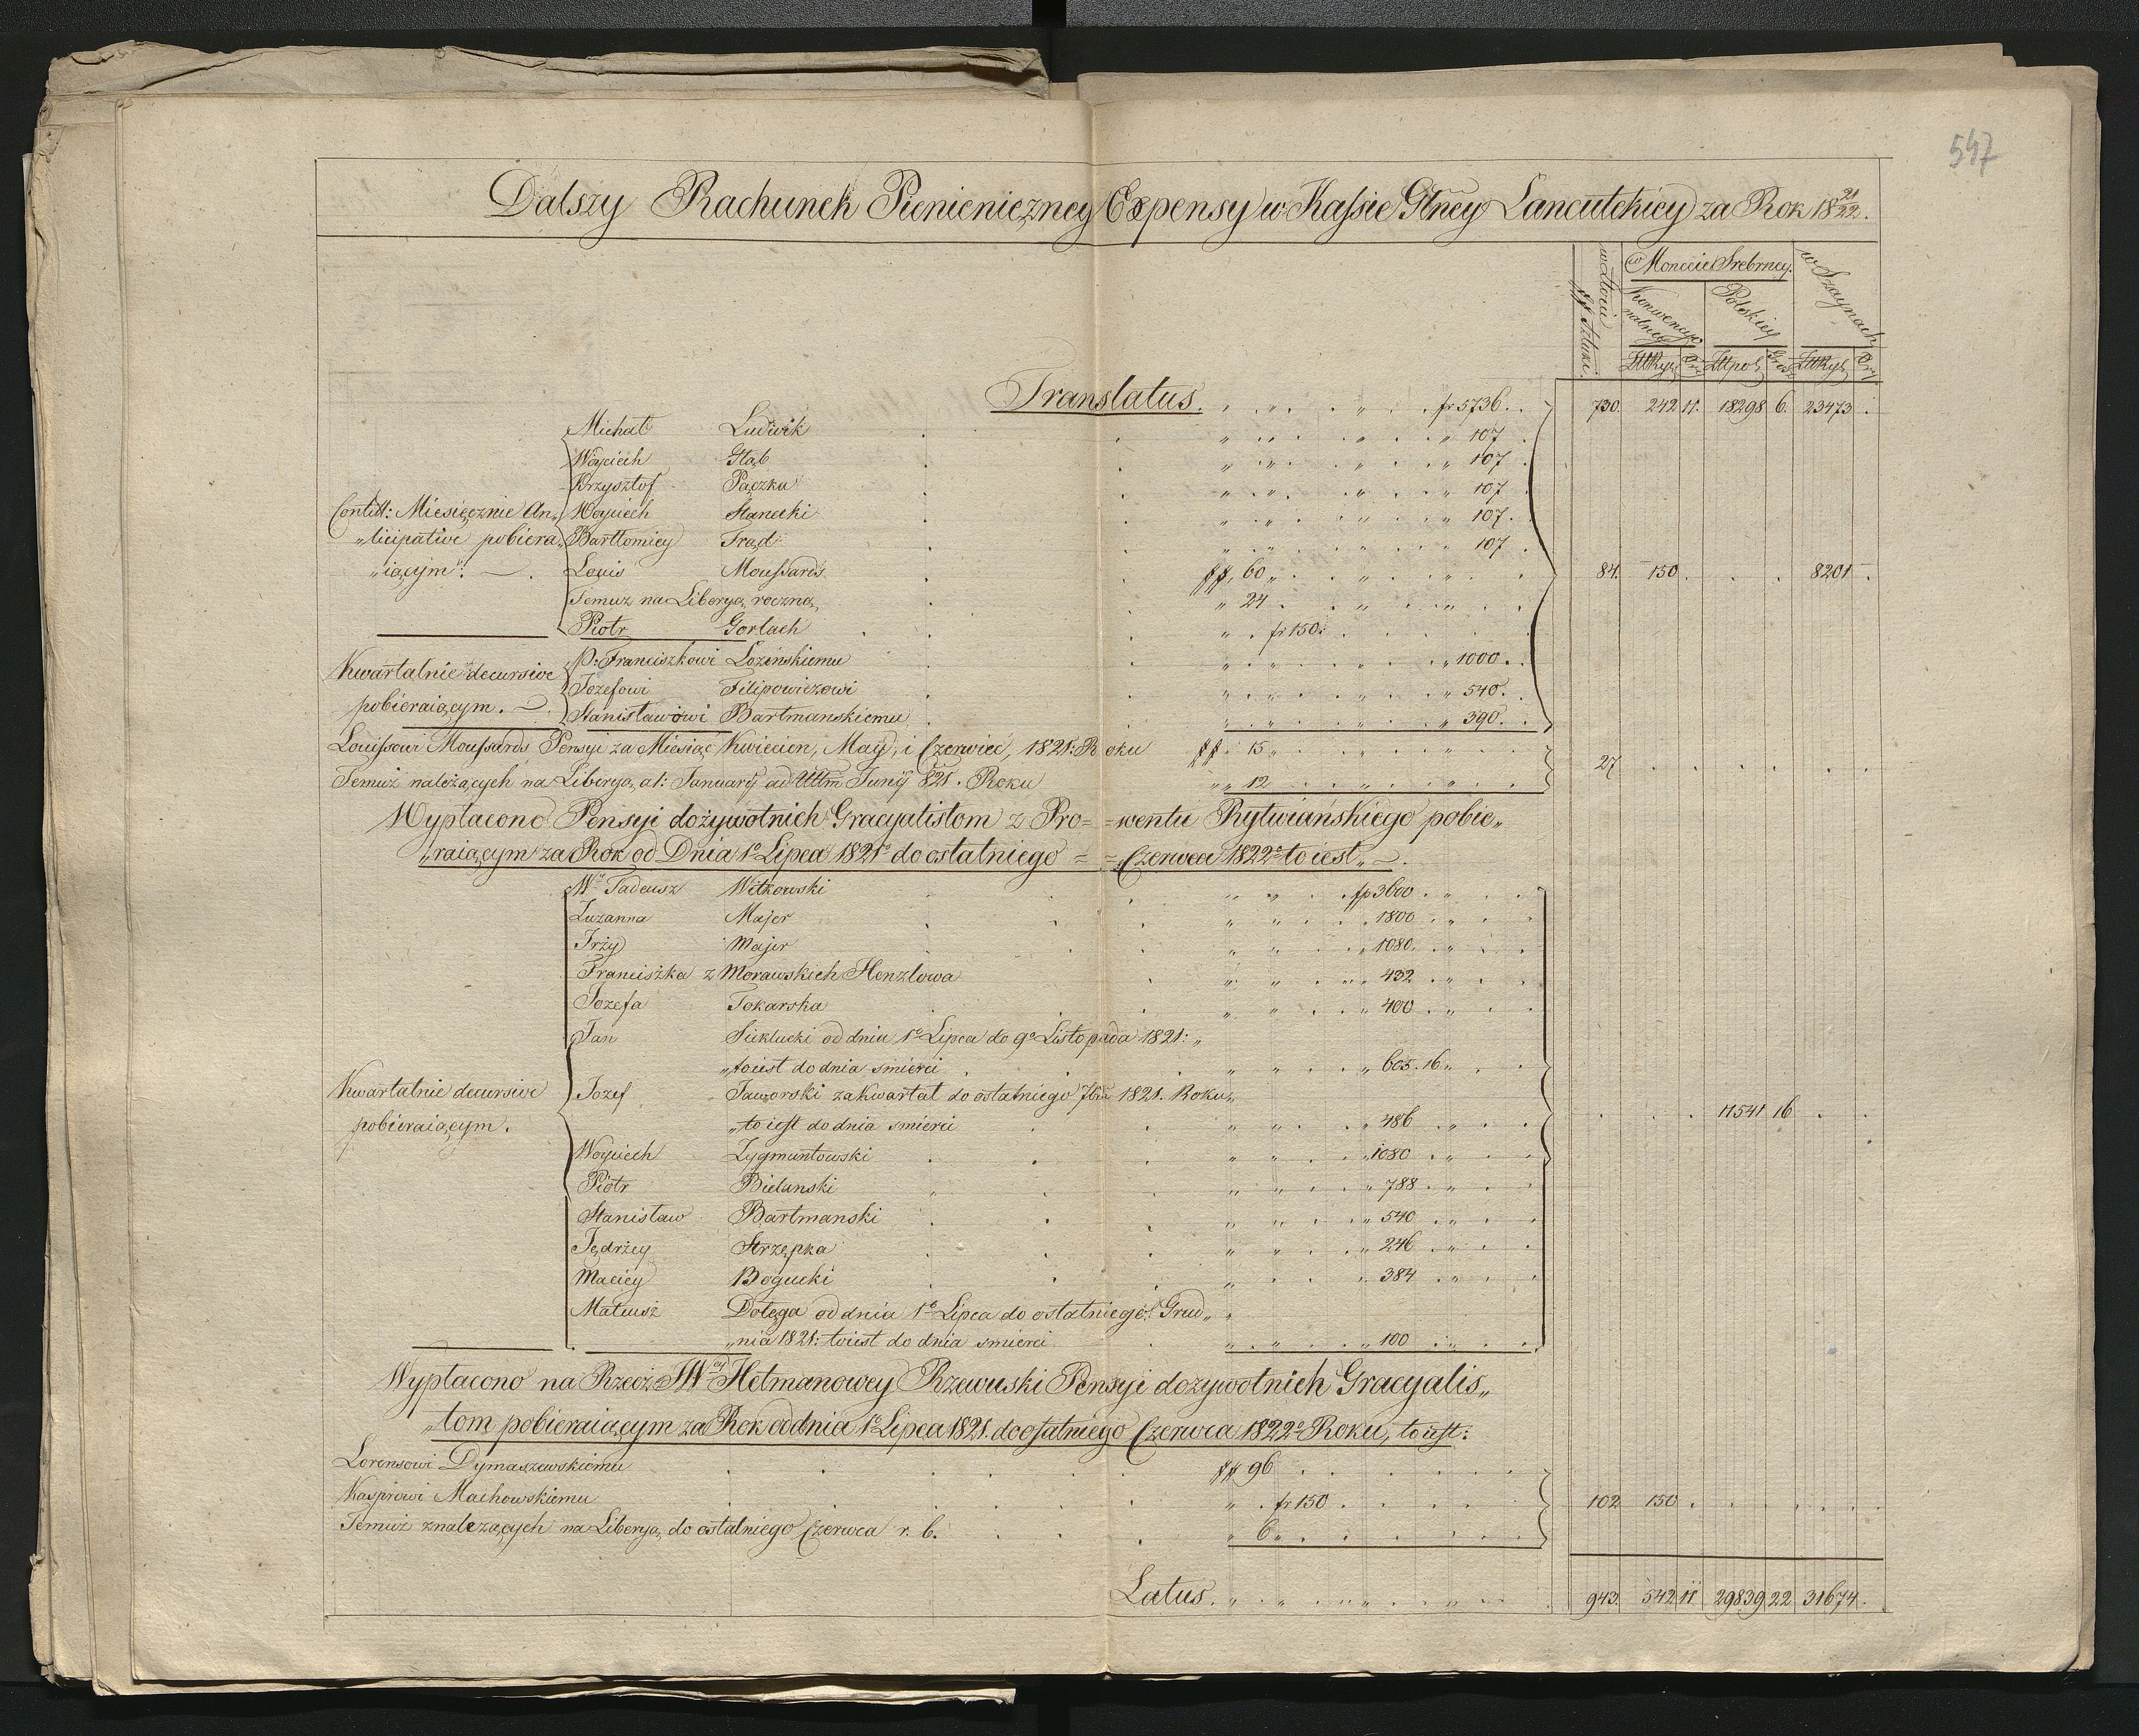 547
Dalszy Rachunek Pienieniczney Expensy w Kassie Głney Lancutckiey za Rok 18 21/22.
w Złocie ## Sztuki.
w Monecie Srebrney.
w Szaynach
Konwencyonalney
Polskiey
ZłRyń Xry Złpol Grosz ZłRyń Xry
Translatus. fr 5736. 730. 242 11. 18298 6. 23473 .
Michał Ludwik " 107
Woyciech Głąb " 107
Krzysztof Pączka " 107
Contitt: Miesięcznie An„ Woyciech Stanecki " 107.
„ticipative pobiera„ Bartłomiey Frąd " 107
„iącym: Louis Moussards ## 60 84. 150 . . . 8201 .
Temuz na Liberyą roczną " 24
Piotr Gorlach " fr 150:
Kwartalnie decursive P: Franciszkowi Lozinskiemu " 1000.
Jozefowi Filipowiczowi " 540.
pobieraiącym. Stanisławowi Bartmanskiemu " 390.
Louissowi Moussards Pensyi za Miesiąc Kwiecien, May, i Czerwiec, 1821: Roku ## 15 27
Temuż należących na Liberyą, a 1: Januarij ad Ultm Junij 821. Roku " 12
Wypłacono Pensyi dożywotnich Gracyalistom z Pro= =wentu Rytwiańskiego pobie„
„raiącym za Rok od Dnia 1o Lipca 1821o do ostatniego = = Czerwca 1822o to iest„
Wo Tadeusz Witkowski fp 3600
Zuzanna Majer 1800
Jrży Majer " 1080.
Franciszka z Morawskich Henzlowa " 432
Jozefa Tokarska " 400
Jan Sieklucki od dnia 1o Lipca do 9o Listopada 1821: „
„to iest do dnia smierci " 605. 16
Kwartalnie decursive Jozef Jaworski za kwartał do ostatniego 7bra 1821. Roku„
11541 16
pobieraiącym. „to iest do dnia smierci " 486
Woyciech Zygmuntowski " 1080
Piotr Bielanski " 788
Stanisław Bartmanski " 540
Jędrzey Strzępka " 246
Maciey Bogucki " 384
Mateusz Dołęga od dnia 1o Lipca do ostatniego Grud„
„nia 1821: to iest do dnia smierci " 100
Wypłacono na Rzecz JWey Hetmanowey Rzewuski Pensyi dożywotnich Gracyalis„
„tom pobieraiącym za Rok od dnia 1o Lipca 1821. do ostatniego Czerwca 1822o Roku, to iest:
Lorensowi Dymaszewskiemu ## 96
Kasprowi Machowskiemu " fr 150 102 150 .
Temuż znalezących na Liberyą, do ostatniego Czerwca r. b. " 6
Latus. 943. 542 11 29839 22 31674 .